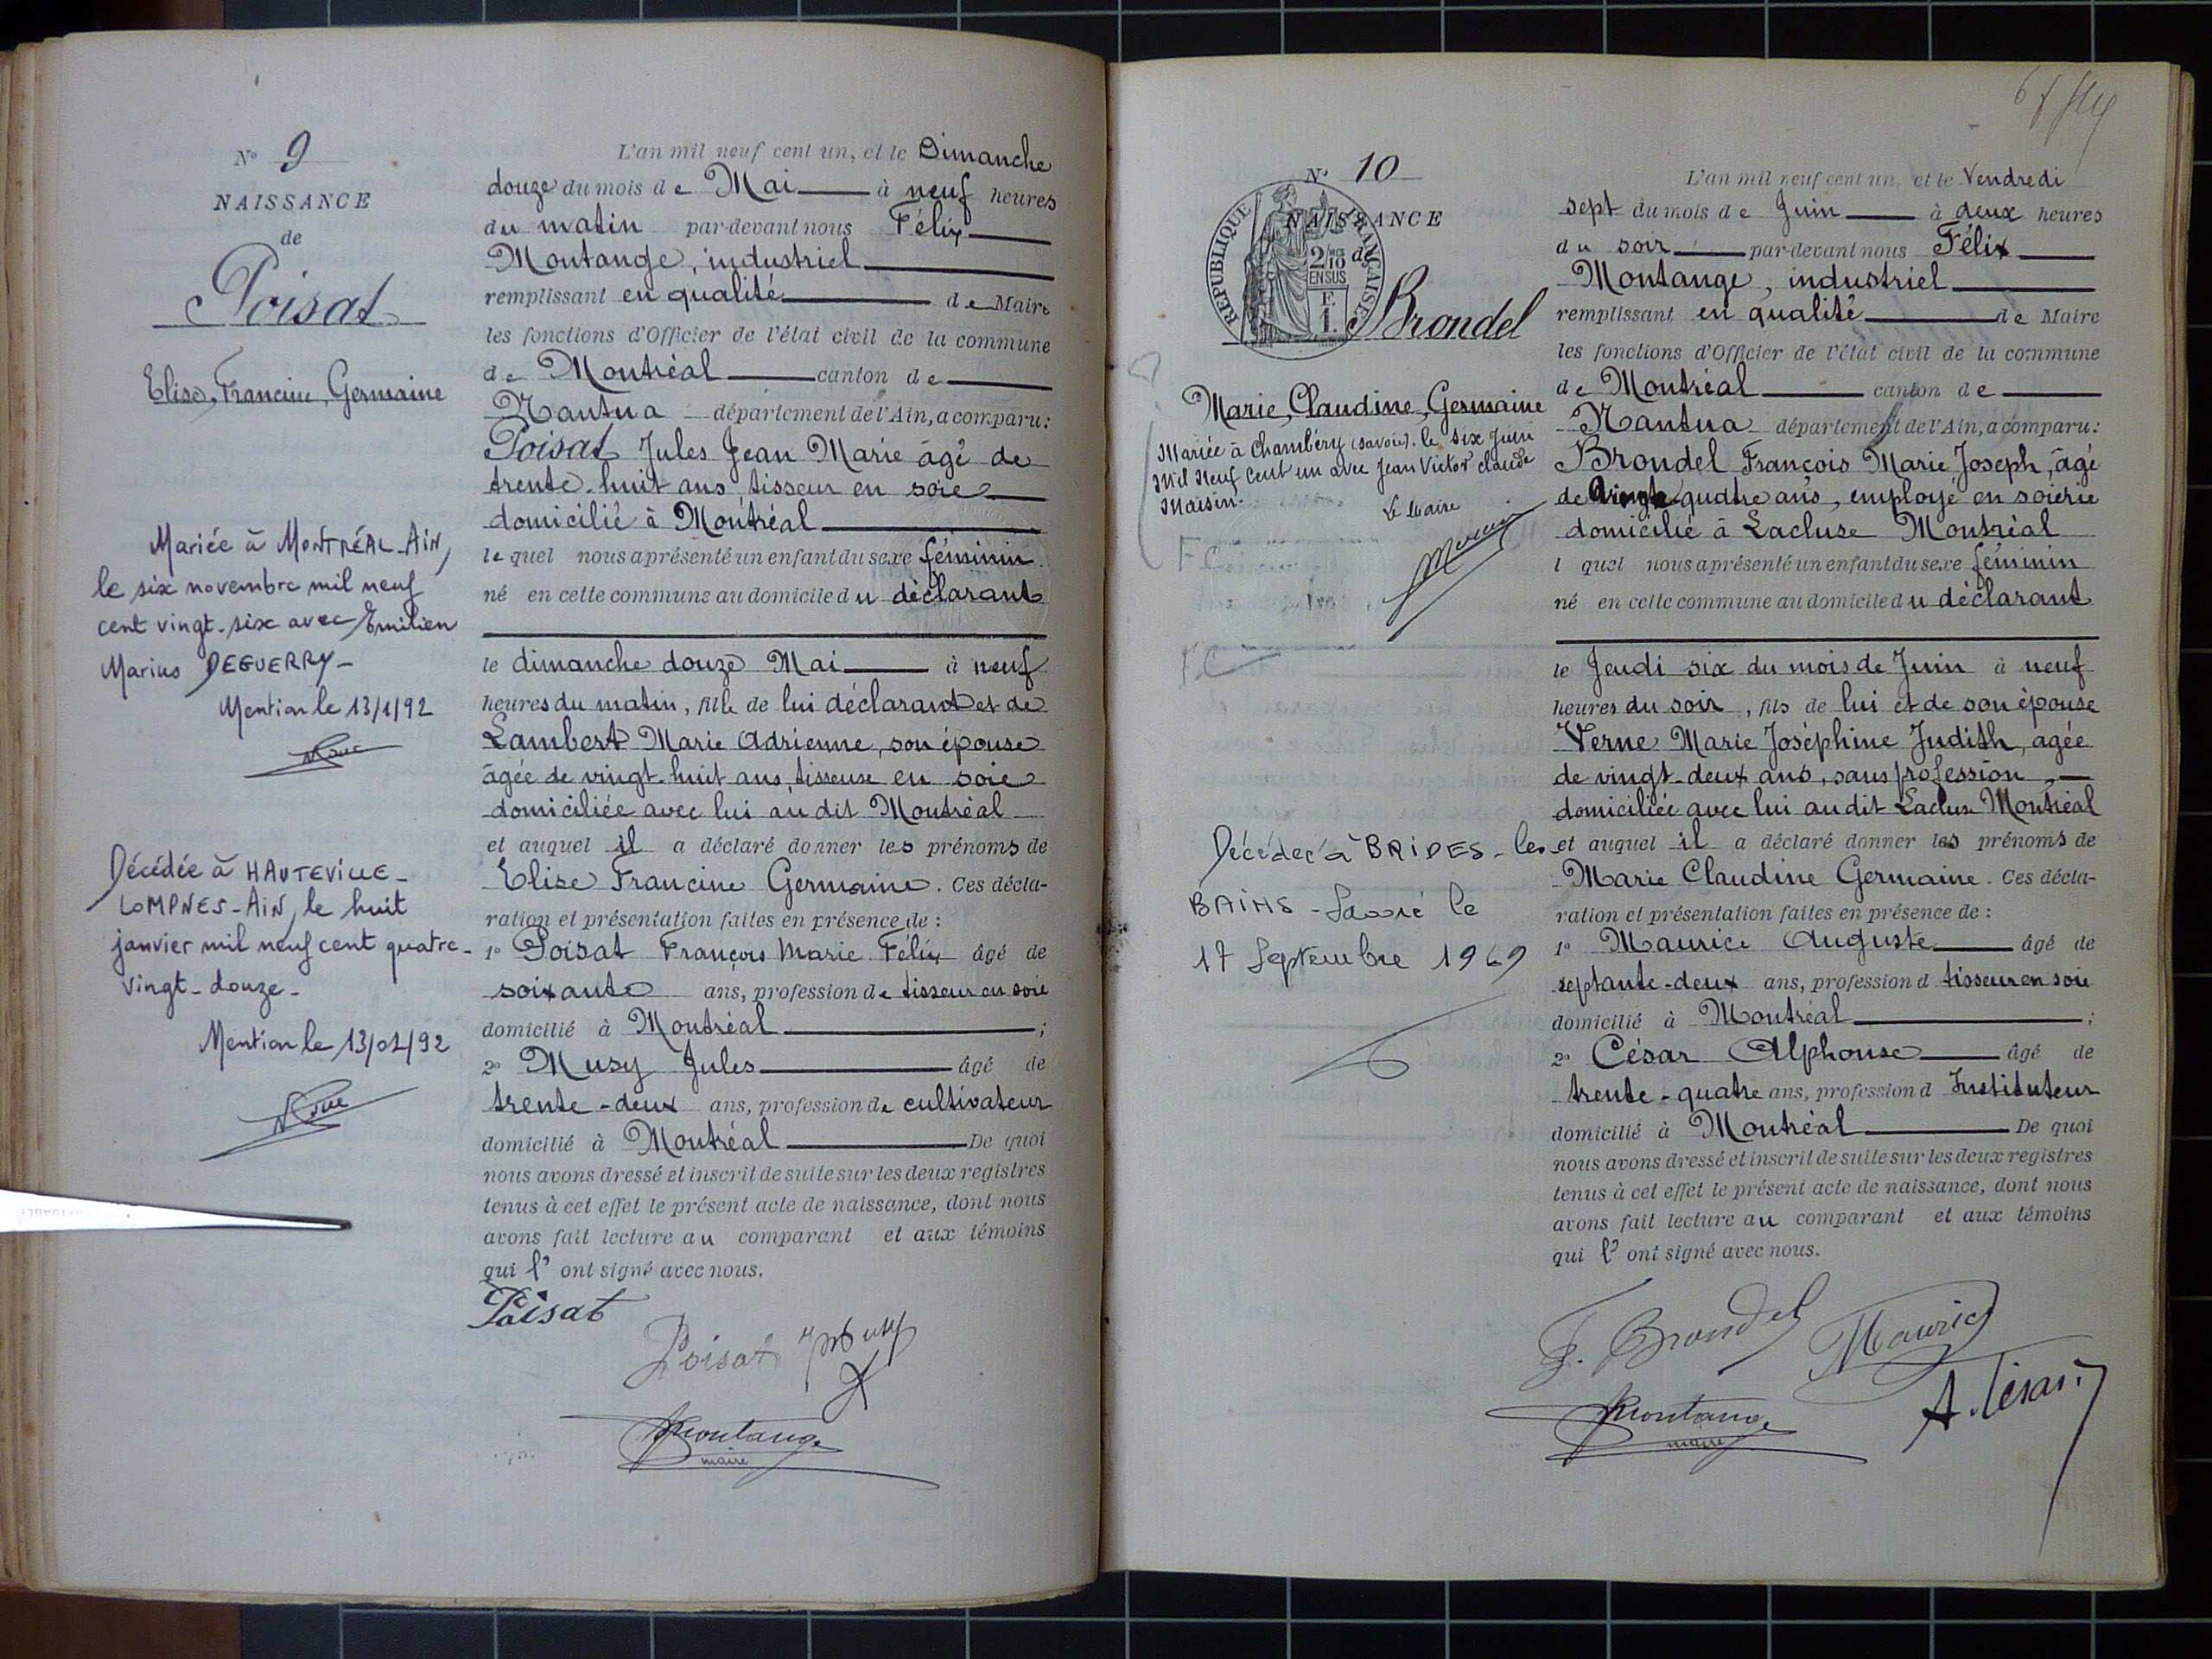 N° 9
NAISSANCE
de
Poisat
Elise, Francine, Germaine
Mariée à MONTRÉAL-AIN,
le six novembre mil neuf
cent vingt-six avec Emilien
Marius DEGUERRY-
Mention le 13/1/92
Décédée à HAUTEVILLE-
LOMPNES-AIN, le huit
janvier mil neuf cent quatre-
vingt-douze-
Mention le 13/01/92
L'an mil neuf cent un, et le Dimanche
douze du mois de Mai à neuf heures
du matin par-devant nous Félix
Montange, industriel
remplissant en qualité de Maire
les fonctions d'Officier de l'état civil de la commune
de Montréal canton de
Nantua département de l'Ain, a comparu:
Poisat Jules Jean Marie âgé de
trente-huit ans, tisseur en soie
domicilié à Montréal
le quel nous a présenté un enfant du sexe féminin
né en cette commune au domicile du déclarant
le dimanche douze Mai à neuf
heures du matin, fille de lui déclarant et de
Lambert Marie Adrienne, son épouse
âgée de vingt-huit ans, tisseuse en soie
domiciliée avec lui au dit Montréal
et auquel il a déclaré donner les prénoms de
Elise Francine Germaine. Ces décla-
ration et présentation faites en présence de :
1° Poisat François Marie Félix âgé de
soixante ans, profession de tisseur en soie
domicilié à Montréal ;
2° Musy Jules âgé de
trente-deux ans, profession de cultivateur
domicilié à Montréal De quoi
nous avons dressé et inscrit de suite sur les deux registres
tenus à cet effet le présent acte de naissance, dont nous
avons fait lecture au comparant et aux témoins
qui l' ont signé avec nous.
Poisat
Poisat
Montange
maire
N° 10
NAISSANCE
de
RÉPUBLIQUE FRANÇAISE
2/10 EN SUS
F.
1.
Brondel
Marie, Claudine, Germaine
Mariée à Chambéry (Savoie). le six Juin
Mil Neuf Cent un avec Jean Victor Claude
Maisin.
Le Maire
Décédée à BRIDES-les
BAINS - Savoie le
17 Septembre 1969
L'an mil neuf cent un, et le Vendredi
sept du mois de Juin à deux heures
du soir par-devant nous Félix
Montange, industriel
remplissant en qualité de Maire
les fonctions d'Officier de l'état civil de la commune
de Montréal canton de
Nantua département de l'Ain, a comparu:
Brondel François Marie Joseph, âgé
de vingt-quatre ans, employé en soierie
domicilié à Lacluse Montréal
l quel nous a présenté un enfant du sexe féminin
né en cette commune au domicile du déclarant
le Jeudi six du mois de Juin à neuf
heures du soir, fils de lui et de son épouse
Verne Marie Joséphine Judith, agée
de vingt-deux ans, sans profession,
domiciliée avec lui au dit Lacluse Montréal
et auquel il a déclaré donner les prénoms de
Marie Claudine Germaine. Ces décla-
ration et présentation faites en présence de :
1° Maurice Auguste âgé de
septante-deux ans, profession d tisseur en soie
domicilié à Montréal ;
2° César Alphonse âgé de
trente-quatre ans, profession d Instituteur
domicilié à Montréal De quoi
nous avons dressé et inscrit de suite sur les deux registres
tenus à cet effet le présent acte de naissance, dont nous
avons fait lecture au comparant et aux témoins
qui l' ont signé avec nous.
F. Brondel Maurice
Montange A. César
maire